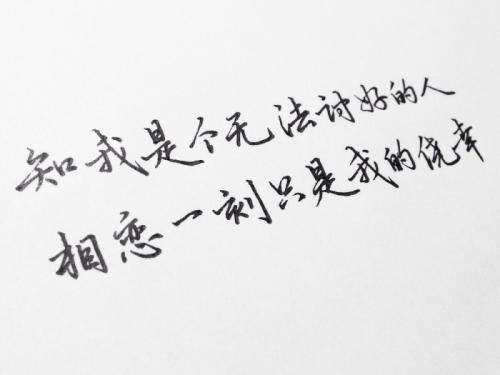 知我是个无法讨好的人
相恋一刻只是我的侥幸